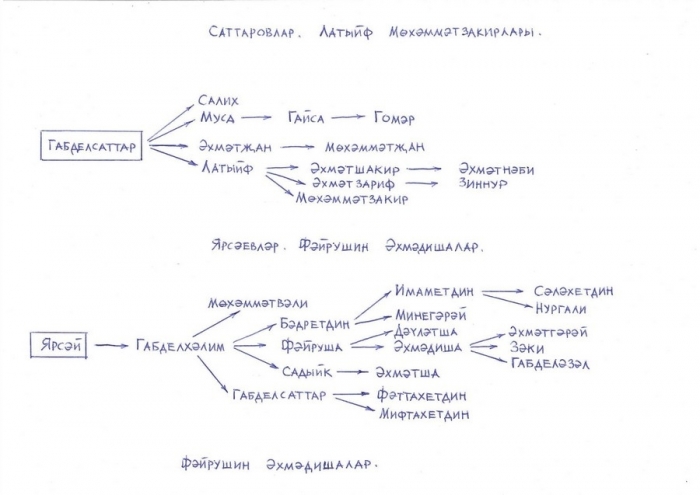 Саттаровлар. Латыйф Мөхәммәтзакирлары.
Салих
Муса Гайса Гомәр
Габделсаттар
Әхмәтҗан Мөхәммәтҗан
Латыйф Әхмәтшакир Әхмәтнәби
Әхмәтзариф Зиннур
Мөхәммәтзакир
Ярсәевләр. Фәйрушин Әхмәдишалар.
Имаметдин Сәләхетдин
Мөхәммәтвәли Нургали
Бәдретдин Минегәрәй
Дәүләтша Әхмәтгәрәй
Ярсәй Габделхәлим Фәйруша Әхмәдиша Зәки
Габделәзәл
Садыйк Әхмәтша
Габделсаттар Фәттахетдин
Мифтахетдин
Фәйрушин Әхмәдишалар.